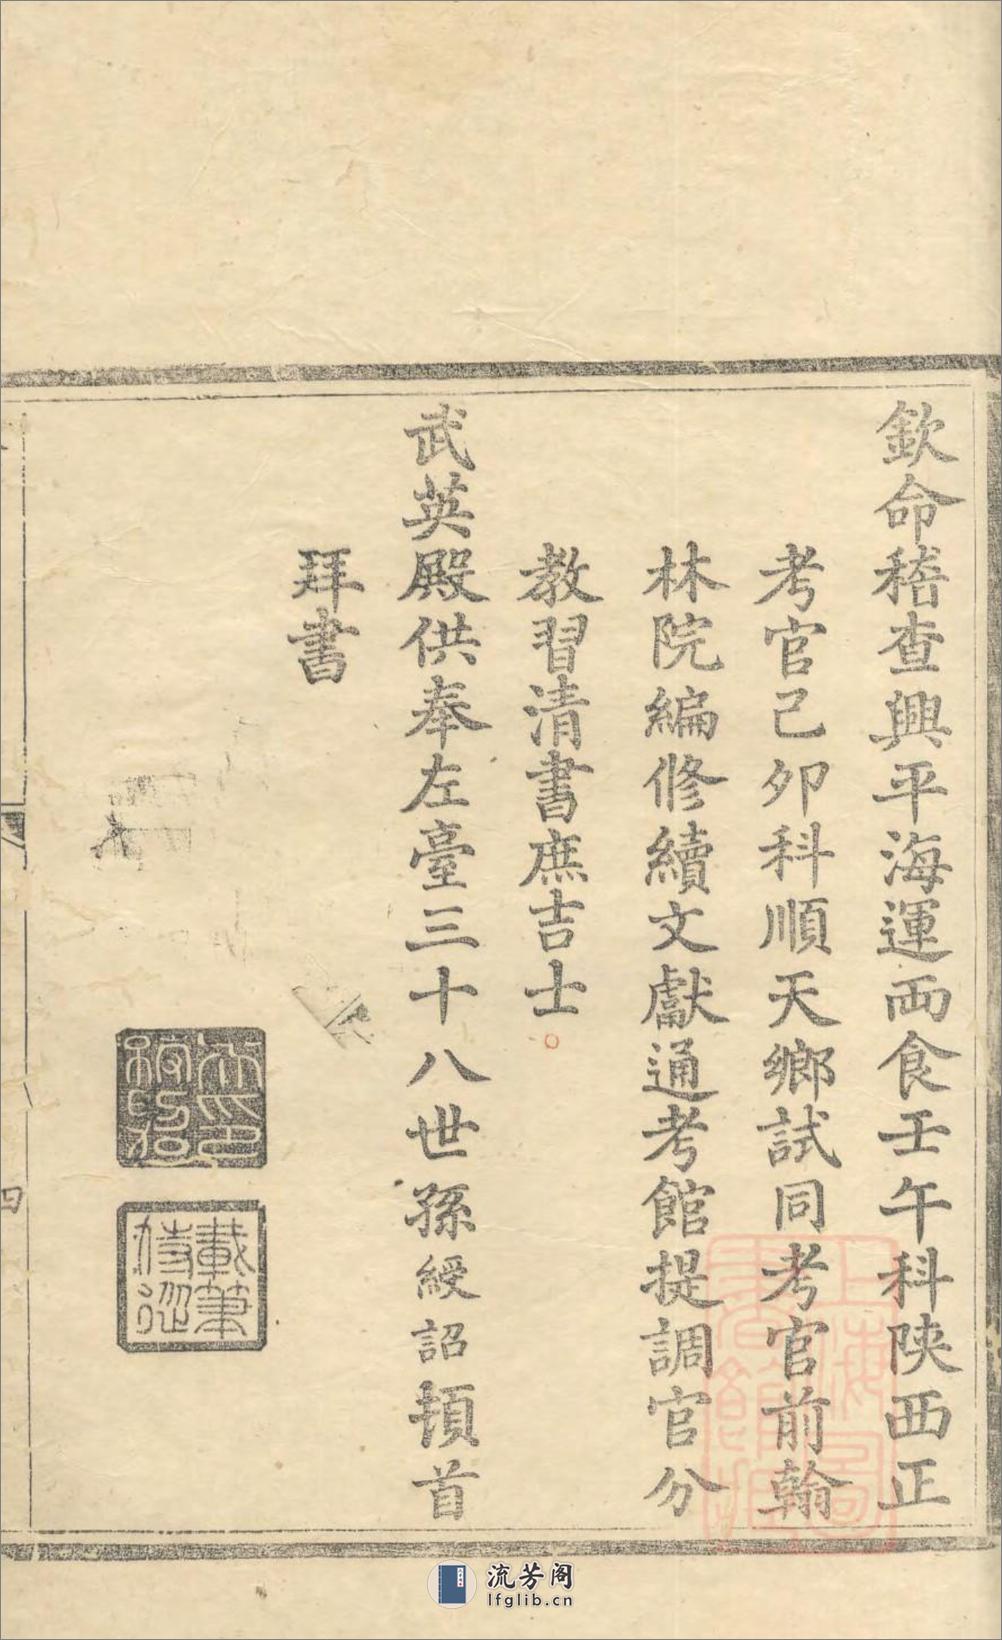 欽命稽查興平海運兩倉壬午科陝西正
考官己卯科順天鄉試同考官前翰
林院編修續文獻通考館提調官分
教習清書庶吉士
武英殿供奉左臺三十八世孫綬詔頓首
拜書
載筆
四
流芳阁
lfglib.cn